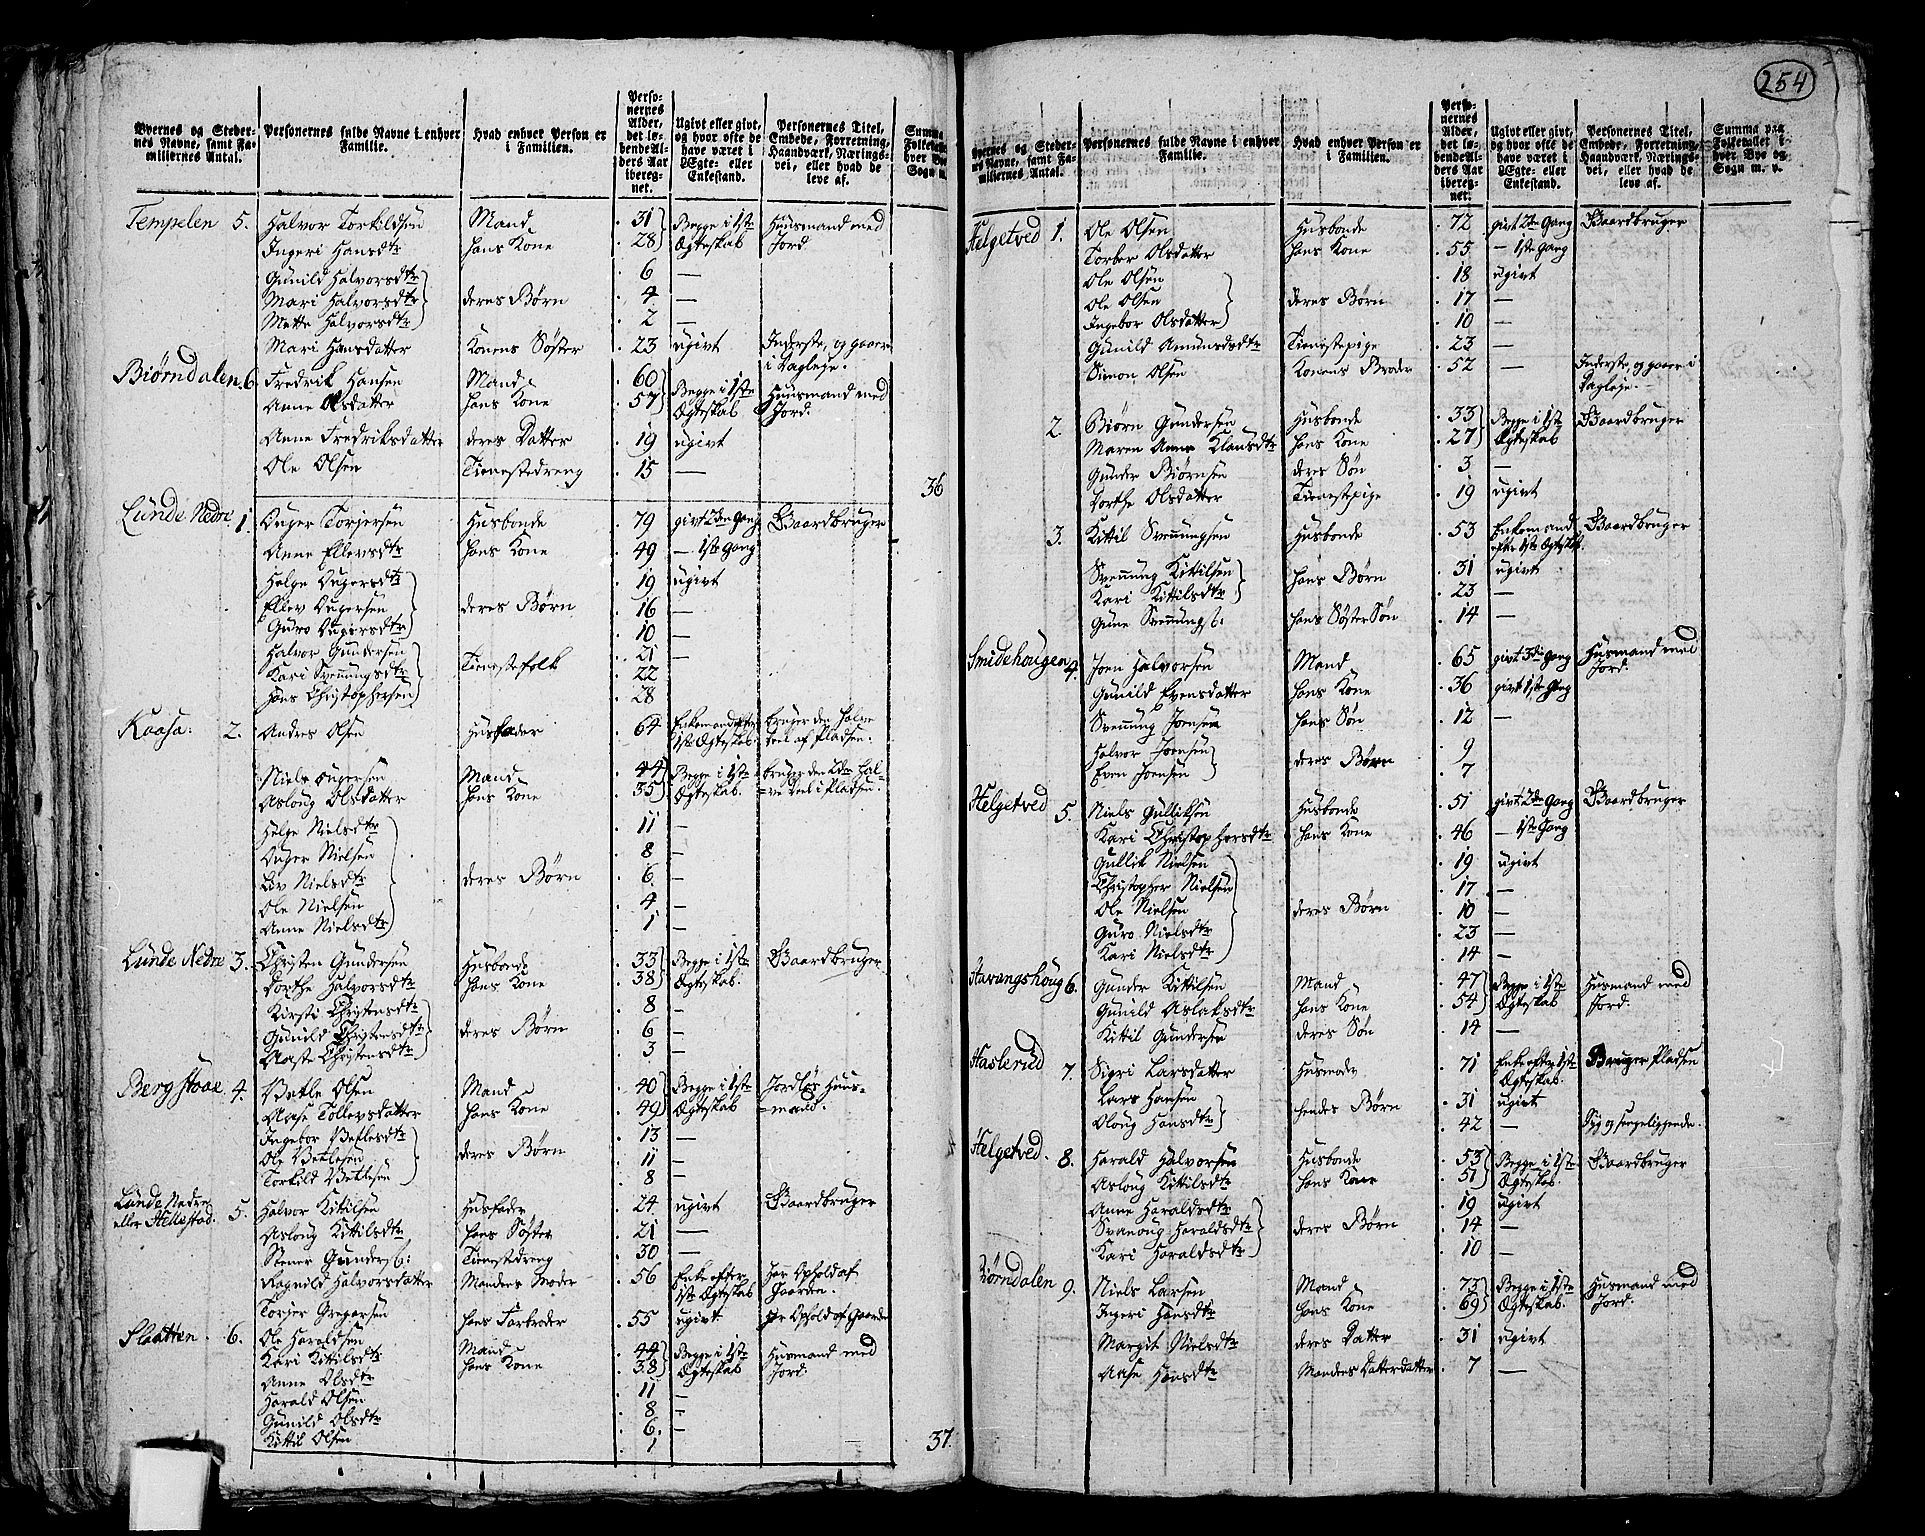 254
Byernes og Stedernes Navne, samt Familiernes Antal. | Personernes fulde Navne i enhver Familie. | Hvad enhver Person er i Familien. | Personernes Alder, det løbende Alders Aar iberegnet. | Ugivt eller givt, og hvor ofte de have været i Ægte- eller Enkestand. | Personernes Titel, Embede, Forretning, Haandværk, Næringsvei, eller hvad de leve af.
Tempelen 5. Halvor Torkildsen | Mand | 31 | Begge i 1ste Ægteskab | Huusmand med Jord
Ingeri Hansdtr | hans Kone | 28
Gunild Halvorsdtr | 6 | —
Mari Halvorsdtr | deres Børn | 4 | —
Mette Halvorsdtr | 2 | —
Mari Hansdatter | Konens Søster | 23 | ugivt | Inderste, og gaaer i Dagleje.
Biørndalen 6 Fredrik Hansen | Mand | 60 | Begge i 1ste Ægteskab | Huusmand med Jord.
Anne Olsdatter | hans Kone | 57
Anne Fredriksdatter | deres Datter | 19 | ugivt
Ole Olsen | Tienestedreng | 15 | —
36
Lunde Nedre 1. Auger Torjersen | Husbonde | 79 | givt 2den Gang | Gaardbruger
Anne Ellevsdtr | hans Kone | 49 | — 1ste Gang
Helge Augersdtr | 19 | ugivt
Ellev Augersen | deres Børn | 16 | —
Guro Augersdtr | 10 | —
Halvor Gundersen | 21 | —
Kari Svennungsdtr | Tienestefolk | 22
Hans Christophersen | 28
Kaasa: 2. Andres Olsen | Husfader | 64 | Enkemand efter 1ste Ægteskab | bruger den halve deel af Pladsen.
Niels Augersen | Mand | 44 | Begge i 1ste Ægteskab. | bruger den 2den halve deel i Pladsen.
Aslong Olsdatter | hans Kone | 35
Helge Nielsdtr | 11 | —
Auger Nielsen | 8 | —
Liv Nielsdtr | deres Børn | 6 | —
Ole Nielsen | 4 | —
Anne Nielsdtr | 1 | —
Lunde Nedre 3. Christen Gundersen | Husbonde | 33 | Begge i 1ste Ægteskab. | Gaardbruger
Dorthe Halvorsdtr | hans Kone | 38
Kirsti Christensdtr | 8 | —
Gunild Christensdtr | deres Børn | 6 | —
Aaste Christensdtr | 3 | —
Bergstaae 4. Vetle Olsen | Mand | 40 | Begge i 1ste Ægteskab | Jordløs Huusmand.
Aase Tollevsdatter | hans Kone | 49
Ingebor Vetlesdtr | 13 | —
Ole Vetlesen | deres Børn | 11 | —
Torkild Vetlesen | 8 | —
Lunde Nedre eller Hellestad. 5. Halvor Kittilsen | Husfader | 24 | ugivt | Gaardbruger
Aslong Kittilsdtr | hans Søster | 21 | —
Stener Gunders: | Tienestedreng | 30 | —
Ragnild Halvorsdatter | Mandens Moder | 56 | Enke efter 1ste Ægteskab | har Ophold af Gaarden.
Torjer Gregarsen | hans Farbroder | 55 | ugivt | har Ophold af Gaarden
Slaatten. 6. Ole Haraldsen | Mand | 44 | Begge i 1ste Ægteskab | Husmand med Jord.
Kari Kittilsdtr | hans Kone | 38
Anne Olsdtr | 11 | —
Harald Olsen | 8 | —
Gunild Olsdtr | 6 | —
Kittil Olsen | 1
37.
Byernes og Stedernes Navne, samt Familiernes Antal. | Personernes fulde Navne i enhver Familie. | Hvad enhver Person er i Familien. | Personernes Alder, det løbende Alders Aar iberegnet. | Ugivt eller givt, og hvor ofte de have været i Ægte- eller Enkestand. | Personernes Titel, Embede, Forretning, Haandværk, Næringsvei, eller hvad de leve af. | Summa paa Folketallet i hver Bye og Sogn m. v.
Helgetved 1. Ole Olsen | Husbonde | 72 | givt 2den Gang | Gaardbruger
Torber Olsdatter | hans Kone | 55 | — 1ste Gang
Ole Olsen | 18 | ugivt
Ole Olsen | deres Børn | 17 | —
Ingebor Olsdatter | 10 | —
Gunild Amundsdtr | Tienestepige | 23 | —
Simon Olsen | Konens Broder | 52 | — | Inderste, og gaaer i Dagleje.
2. Biørn Gundersen | Husbonde | 33 | Begge i 1ste Ægteskab | Gaardbruger
Maren Anne Klausdtr | hans Kone | 27
Gunder Biørnsen | deres Søn | 3 | —
Dorthe Olsdatter | Tienestepige | 19 | ugivt
3. Kittil Svennungsen | Husbonde | 53 | Enkemand efter 1ste Ægteskab. | Gaardbruger
Svennung Kittilsen | hans Børn | 31 | ugivt
Kari Kittilsdtr | 23 | —
Gune Svennungs: | hans Søster Søn | 14 | —
Smidehougen 4. Joen Halvorsen | Mand | 65 | givt 3die Gang | Husmand med Jord.
Gunild Evensdatter | hans Kone | 36 | givt 1ste Gang
Svennung Joensen | hans Søn | 12 | —
Halvor Joensen | deres Børn | 9
Even Joensen | 7
Helgetved 5. Niels Gulliksen | Husbonde | 51 | givt 2den Gang | Gaardbruger
Kari Christophersdtr | hans Kone | 46 | — 1ste Gang
Gullik Nielsen | 19 | ugivt
Christopher Nielsen | 17 | —
Ole Nielsen | deres Børn | 10 | —
Guro Nielsdtr | 23 | —
Kari Nielsdtr | 14 | —
Stavangshoug 6. Gunder Kittilsen | Mand | 47 | Begge i 1ste Ægteskab | Husmand med Jord.
Gunild Aslaksdtr | hans Kone | 54
Kittil Gundersen | deres Søn | 14 | —
Haslerud 7. Sigri Larsdatter | Husmoder | 71 | Enke efter 1ste Ægteskab. | Bruger Pladsen
Lars Hansen | hendes Børn | 31 | ugivt
Olong Hansdtr | 42 | — | Syg og sengeliggende.
Helgetved. 8. Harald Halvorsen | Husbonde | 53 | Begge i 1ste Ægteskab. | Gaardbruger
Aslong Kittilsdtr | hans Kone | 51
Anne Haraldsdtr | 19 | ugivt
Svanoug Haraldsdtr | deres Børn | 14 | —
Kari Haraldsdtr | 10 | —
Biørndalen 9. Niels Larsen | Mand | 73 | Begge i 1ste Ægteskab. | Husmand med Jord.
Ingeri Hansdtr | hans Kone | 69
Margit Nielsdtr | deres Datter | 31 | ugivt
Aase Hansdtr | Mandens Datterdatter | 7 | —